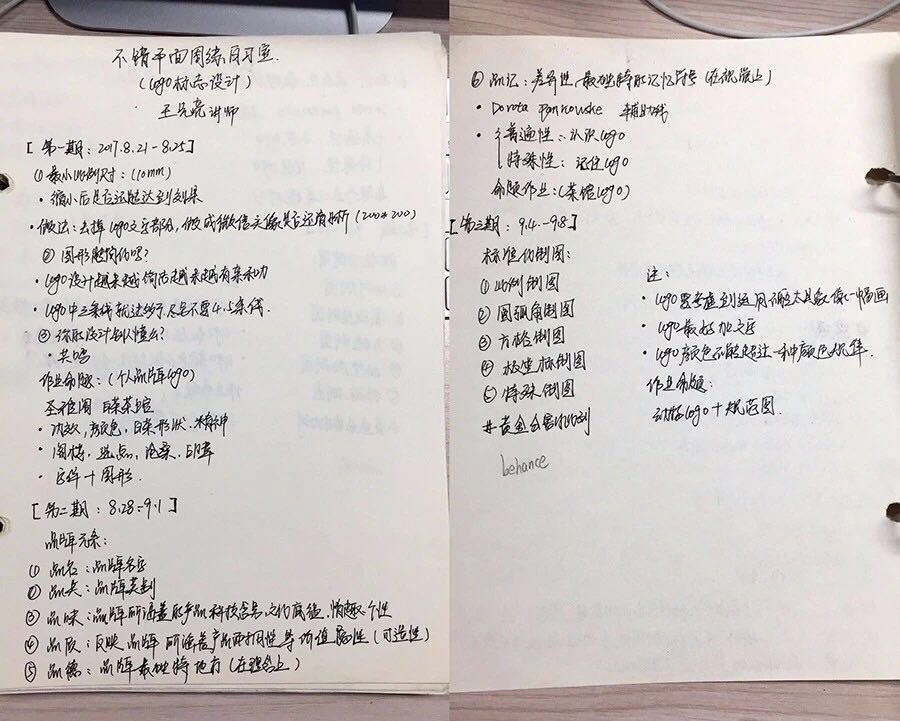 不错平面图练习室
(logo标志设计)
王先亮讲师
[第一期：2017.8.21-8.25]
① 最小比例尺寸：(10mm)
· 缩小后是否还能达到效果
· 做法：去掉logo文字部分，做成微信头像是否还清晰(200×200)
② 图形脱俗你吧？
· logo设计越来越简洁越来越有亲和力
· logo中三条线就达到了不要4.5条线
③ 你的设计别人懂么？
· 共鸣
作业命题：(个人品牌logo)
圣雅阁 白菜茶馆
· 颜色，白菜形状，精神
· 阁楼
· 字体+图形
[第二期：8.28-9.1]
品牌元素：
① 品名：品牌名字
② 品类：品牌类别
③ 品味：品牌所涵盖的产品科技含量，文化底蕴，情趣，个性
④ 品质：反映品牌所涵盖产品耐用性等价值属性(可选性)
⑤ 品德：品牌最独特地方(在理念上)
⑥ 品记：差异性，最独特的记忆符号(在视觉上)
· Dorota Pankowska 辅助线
· 普遍性：认识logo
特殊性：记住logo
命题作业：(茶馆logo)
[第三期：9.4-9.8]
标准化制图：
① 比例制图
② 圆弧角制图
③ 方格制图
④ 极坐标制图
⑤ 特殊制图
#黄金分割比例
behance
注：
· logo要考虑到运用不能太具象像一幅画
· logo最好加文字
· logo颜色不能超过一种颜色标准.
作业命题：
动标logo+规范图.